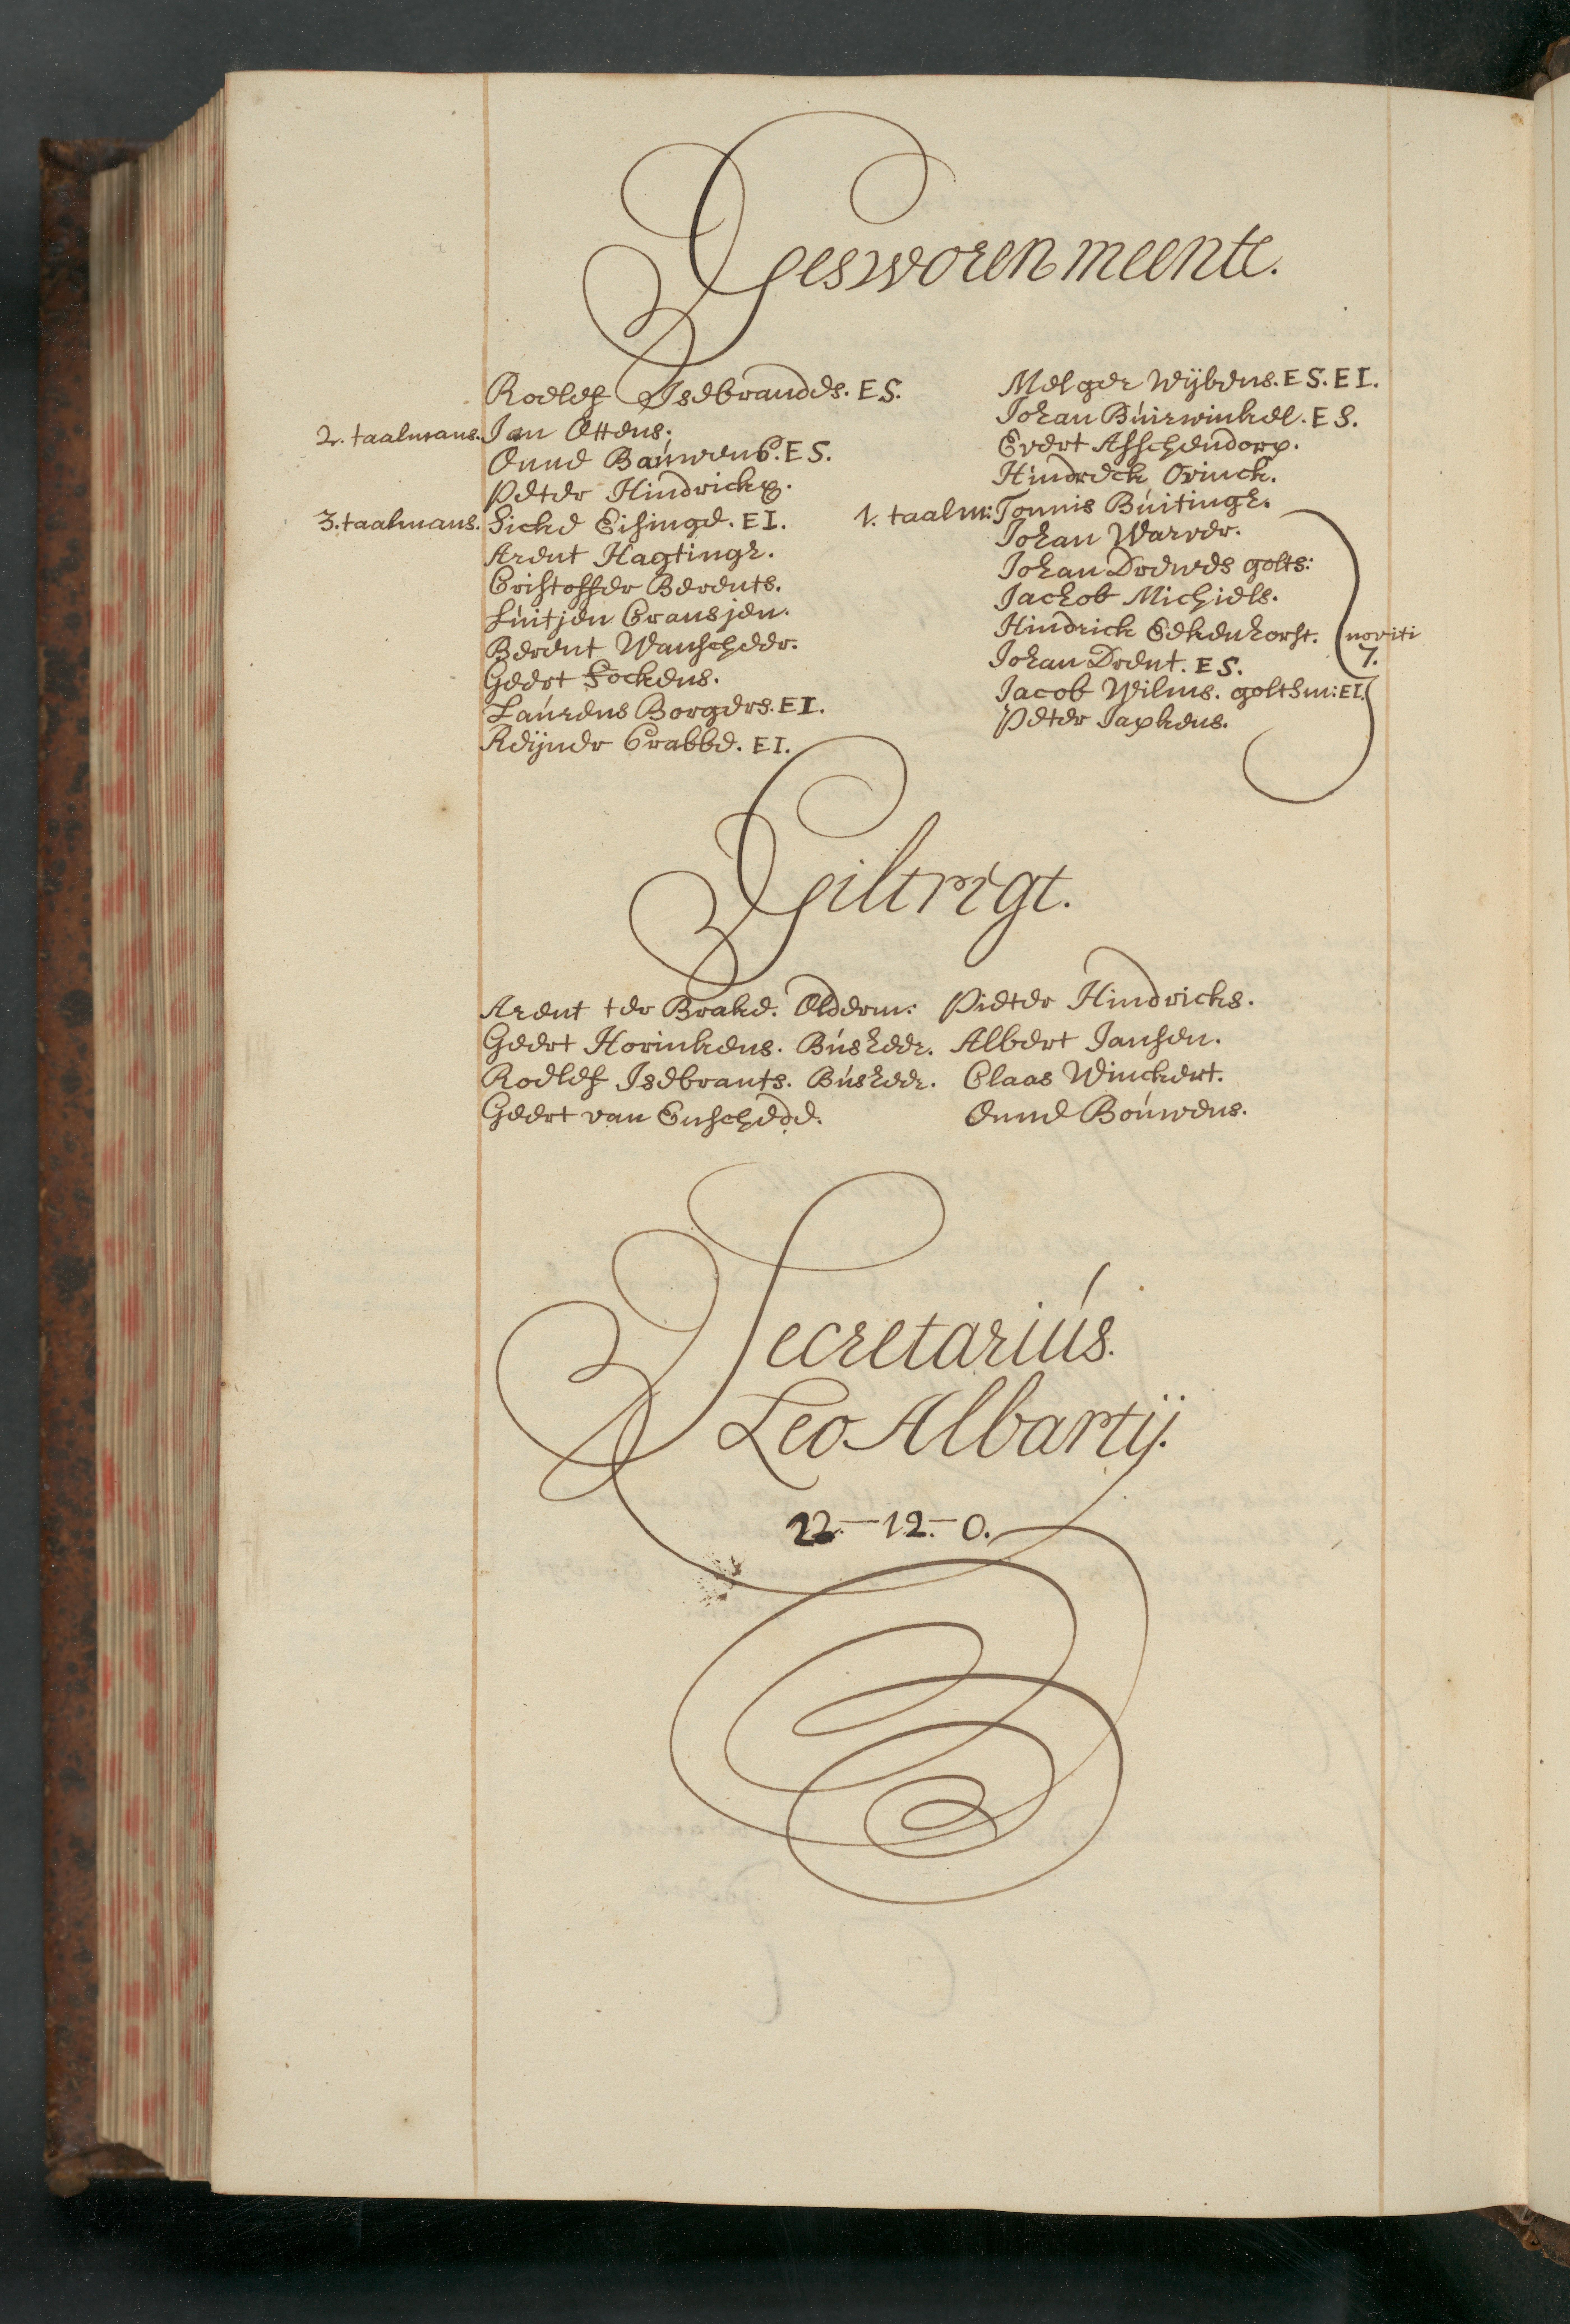 Gesworen meente.
Roeleff Isebrandes. E S.
2. taalmans. Jan Ottens.
Onne Bauwens. E S.
Peter Hindricks.
3. taalmans. Sicke Eisinge. E I.
Arent Hagtingh.
Cristoffer Berents.
Luitjen Cransjen.
Berent Wanscheer.
Geert Fockens.
Laurens Borgers. E I.
Reijner Crabbe. E I.
Melger Wijbens. E S. E I.
Johan Buirwinkel. E S.
Evert Asschendorp.
Hindreck Ovinck.
1. taalm: Tonnis Buitingh.
Johan Warver.
Johan Drewes golts:
Jachob Michiels.
Hindrick Eekenhorst.
Johan Drent. E S.
Jacob Wilms. goltsm: E I.
Peter Japkens.
noviti
7.
Giltregt.
Arent ter Brake. Olderm:
Geert Horinkens. Busheer.
Roeleff Isebrants. Busheer.
Geert van Enschede.
Pieter Hindricks.
Albert Jansen.
Claas Winckert.
Onne Bouwens.
Secretarius.
Leo Albartij.
22.-12.-0.